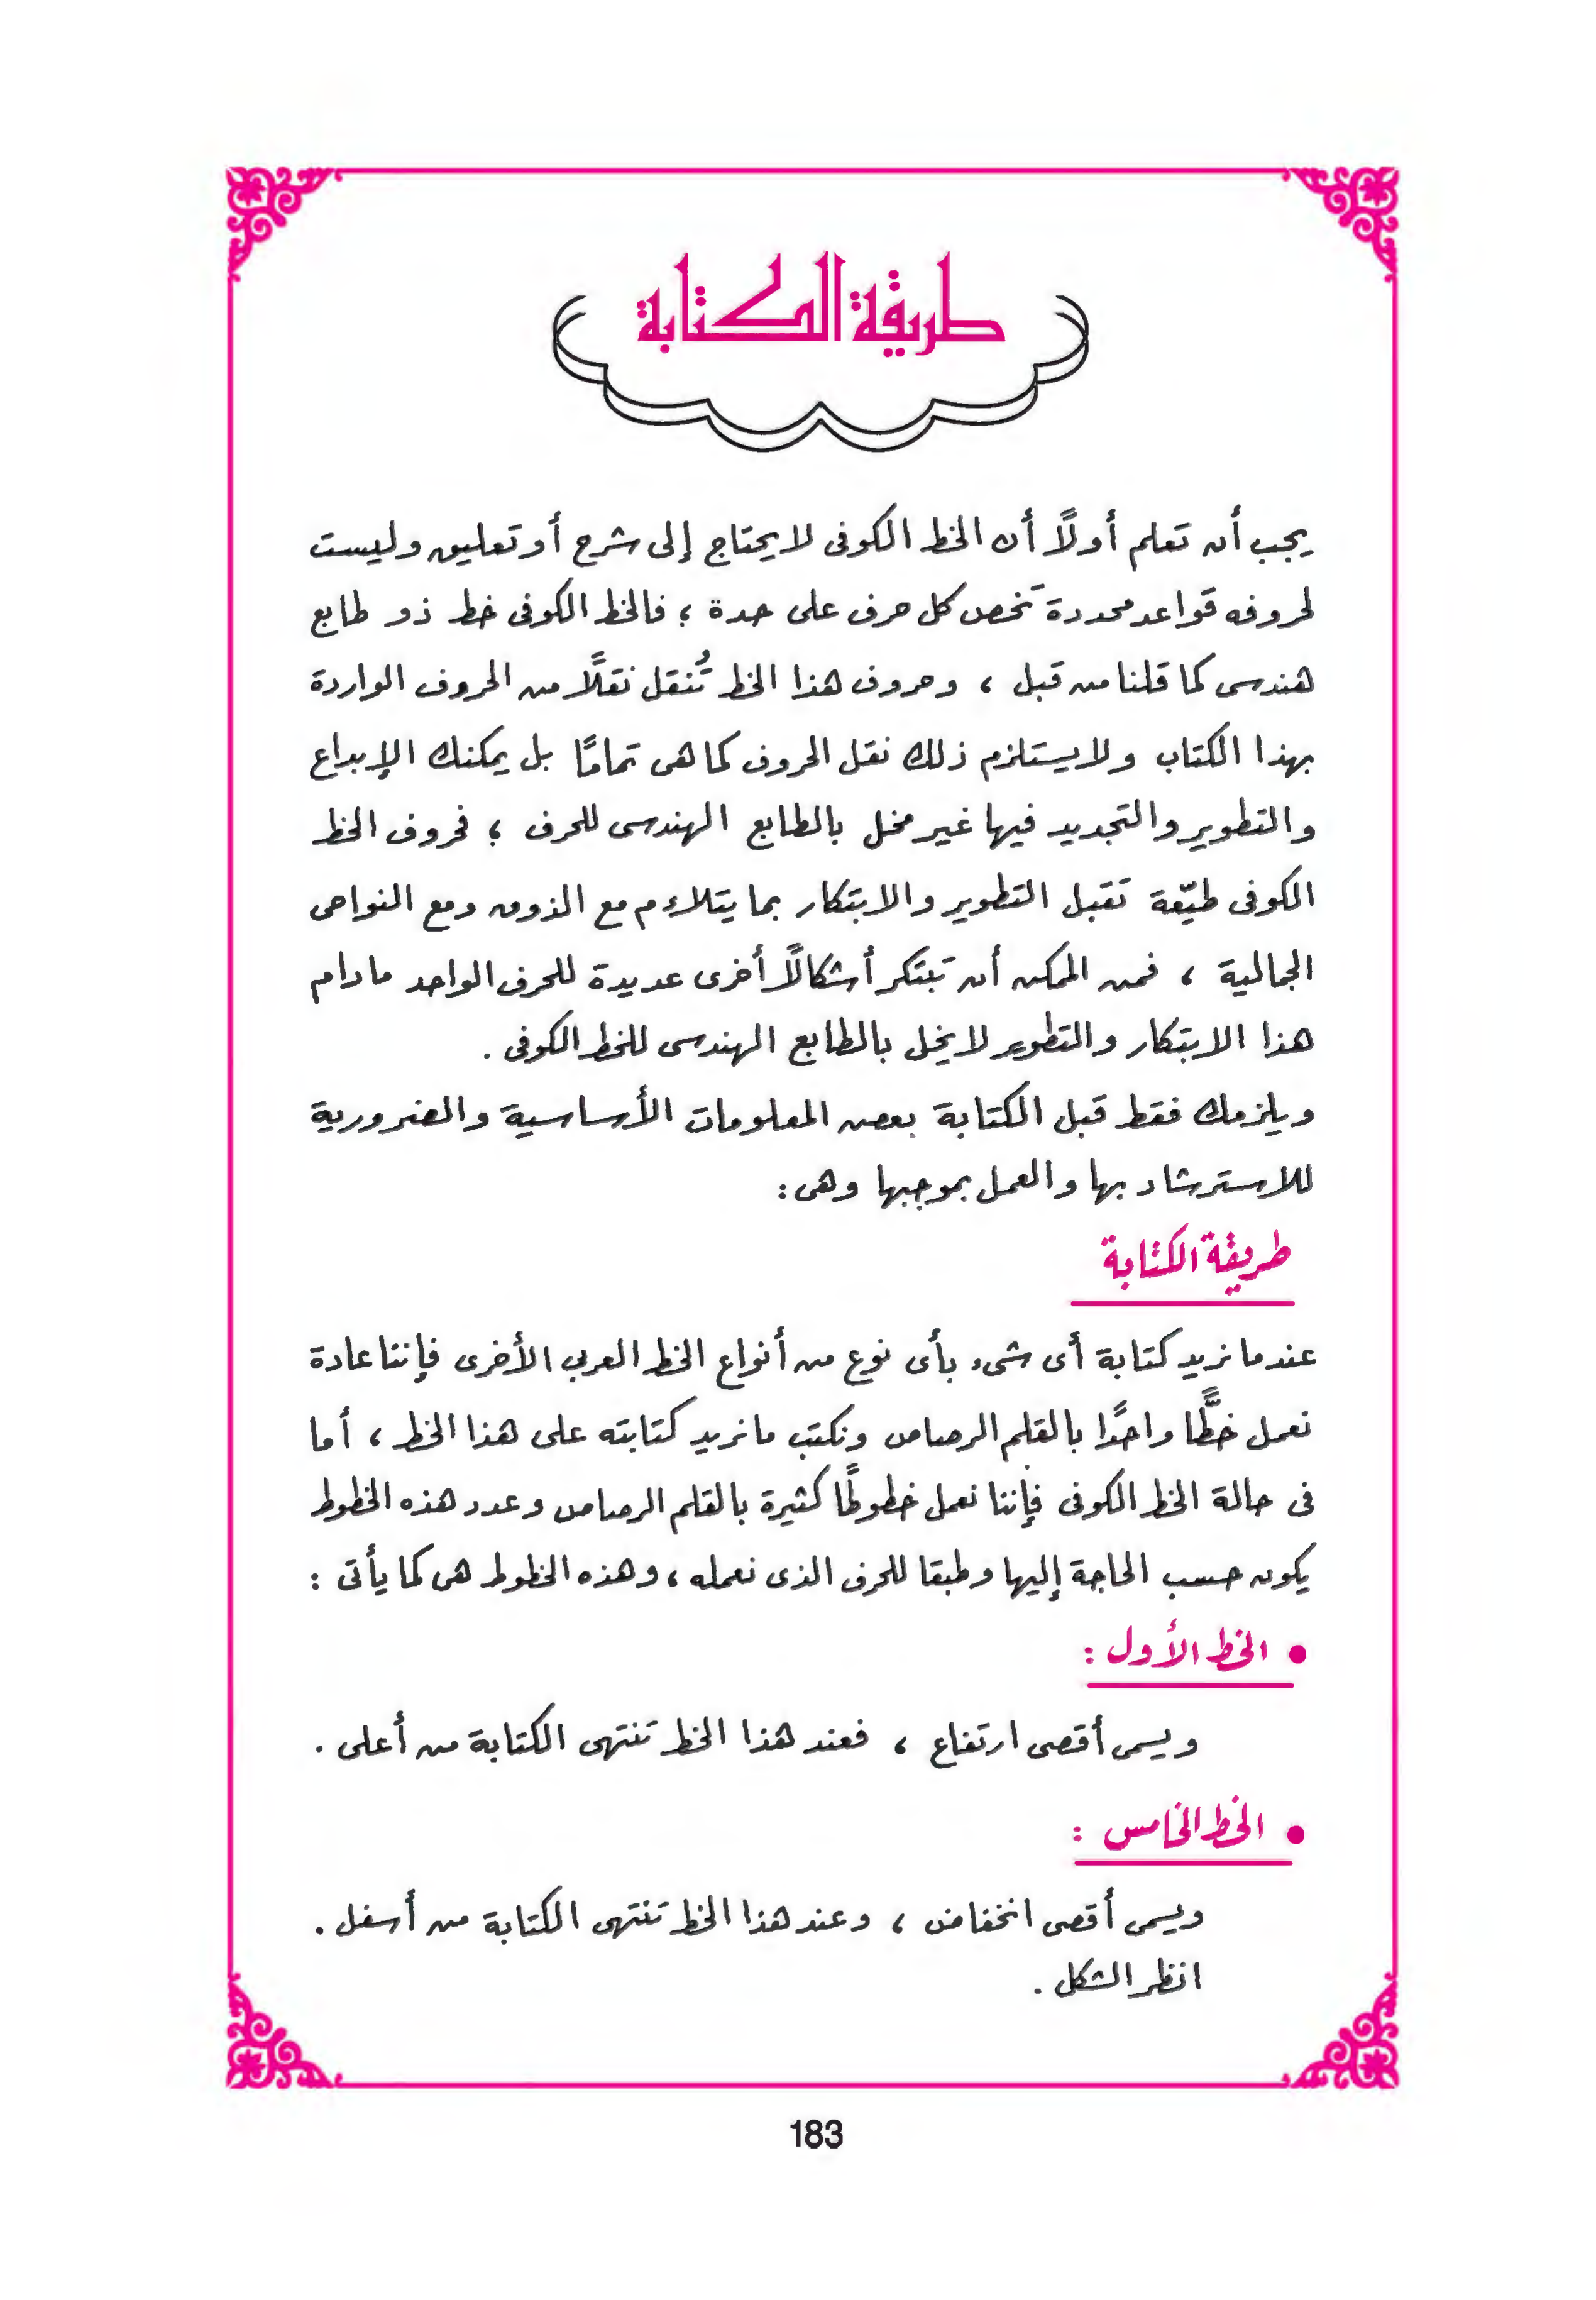 طريقة الكتابة
يجب أن تعلم أولًا أن الخط الكوفى لا يحتاج إلى شرح أو تعليق وليست
لحروفه قواعد محددة تخص كل حرف على حدة ؛ فالخط الكوفى خط ذو طابع
هندسى كما قلنا من قبل ، وحروف هذا الخط تُنقل نقلًا من الحروف الواردة
بهذا الكتاب ولا يستلزم ذلك نقل الحروف كما هى تمامًا بل يمكنك الإبداع
والتطوير والتجديد فيها غير مخل بالطابع الهندسى للحرف ؛ فحروف الخط
الكوفى طيّعة تقبل التطوير والابتكار بما يتلاءم مع الذوق ومع النواحى
الجمالية ، فمن الممكن أن تبتكر أشكالًا أخرى عديدة للحرف الواحد مادام
هذا الابتكار والتطوير لا يخل بالطابع الهندسى للخط الكوفى .
ويلزمك فقط قبل الكتابة بعض المعلومات الأساسية والضرورية
للاسترشاد بها والعمل بموجبها وهى :
طريقة الكتابة
عندما نريد كتابة أى شىء بأى نوع من أنواع الخط العربى الأخرى فإننا عادة
نعمل خطًّا واحدًا بالقلم الرصاص ونكتب ما نريد كتابته على هذا الخط ، أما
فى حالة الخط الكوفى فإننا نعمل خطوطًا كثيرة بالقلم الرصاص وعدد هذه الخطوط
يكون حسب الحاجة إليها وطبقا للحرف الذى نعمله ، وهذه الخطوط هى كما يأتى :
• الخط الأول :
ويسمى أقصى ارتفاع ، فعند هذا الخط تنتهى الكتابة من أعلى .
• الخط الخامس :
ويسمى أقصى انخفاض ، وعند هذا الخط تنتهى الكتابة من أسفل .
انظر الشكل .
183